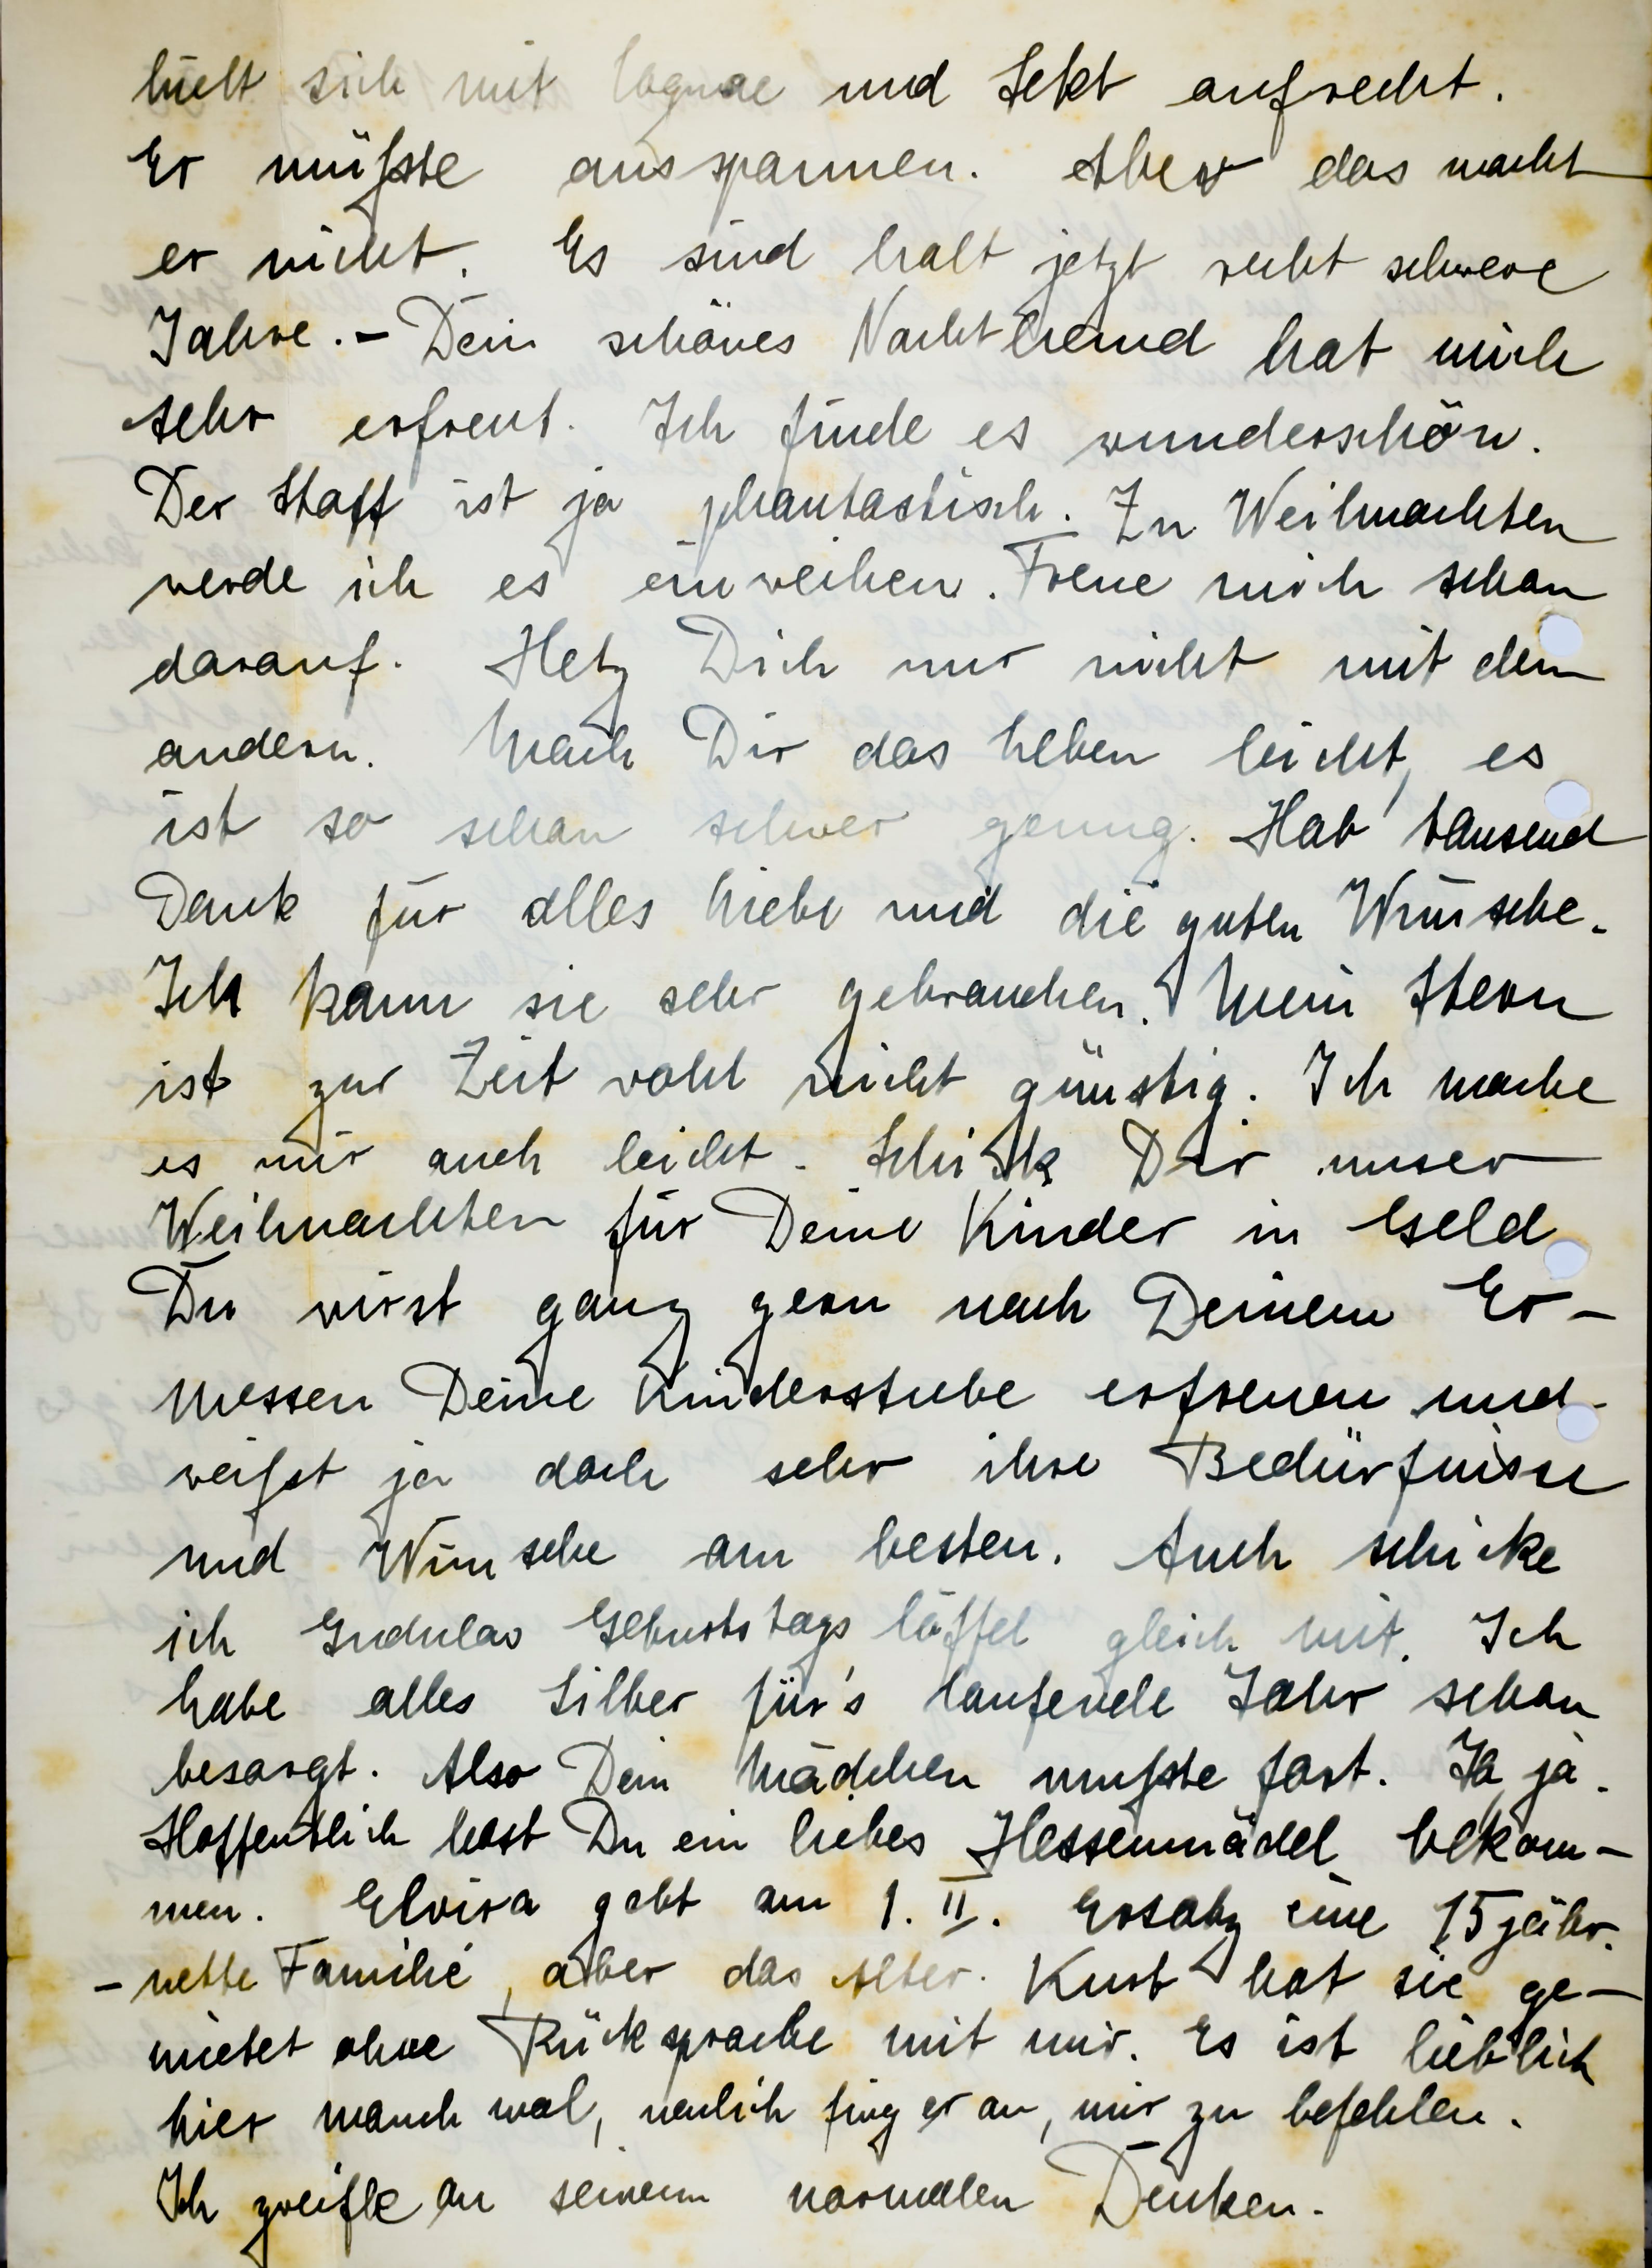 hielt sich mit Cognac und Sekt aufrecht.
Er müßste ausspannen. Aber das macht
er nicht. Es sind halt jetzt recht schwere
Jahre. – Dein schönes Nachthemd hat mich
sehr erfreut. Ich finde es wunderschön.
Der Stoff ist ja phantastisch. Zu Weihnachten
werde ich es einweihen. Freue mich schon
darauf. Hetz Dich nur nicht mit dem
andern. Mach Dir das Leben leicht, es
ist so schon schwer genug. Hab' tausend
Dank für alles Liebe und die guten Wünsche.
Ich kann sie sehr gebrauchen. Mein Stern
ist zur Zeit wohl nicht günstig. Ich mache
es mir auch leicht. Schick Dir unser
Weihnachten für Deine Kinder in Geld
Du wirst ganz gern nach Deinem Er-
messen Deine Kinderstube erfreuen und
weißst ja doch sehr ihre Bedürfnisse
und Wünsche am besten. Auch schicke
ich Gudulas Geburtstagslöffel gleich mit. Ich
habe alles Silber für's laufende Jahr schon
besorgt. Also Dein Mädchen mußste fort. Ja, ja.
Hoffentlich hast Du ein liebes Hessenmädel bekom-
men. Elvira geht am 1. II. Ersatz eine 15jähr.
– nette Familie, aber das Alter. Kurt hat sie ge-
mietet ohne Rücksprache mit mir. Es ist lieblich
hier manchmal, neulich fing er an, mir zu befehlen.
Ich zweifle an seinem normalen Denken.